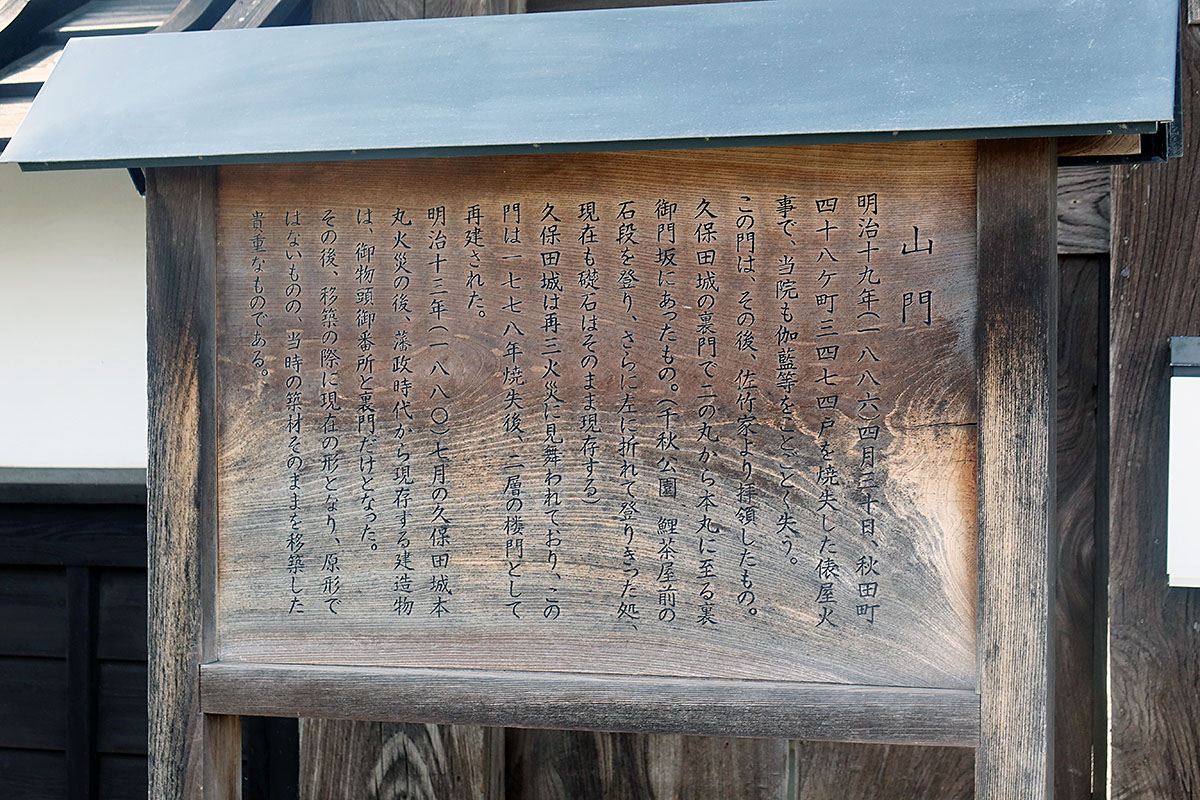 山門
明治十九年(一八八六四月三十日、秋田町
四十八ケ町三四七四戸を焼失した俵屋火
事で、当院も伽藍等をことごとく失う。
この門は、その後、佐竹家より拝領したもの。
久保田城の裏門で二の丸から本丸に至る裏
御門坂にあったもの。(千秋公園 鯉茶屋前の
石段を登り、さらに左に折れて登りきった処、
現在も礎石はそのまま現存する)
久保田城は再三火災に見舞われており、この
門は一七七八年焼失後、二層の楼門として
再建された。
明治十三年(一八八〇)七月の久保田城本
丸火災の後、藩政時代から現存する建造物
は、御物頭御番所と裏門だけとなった。
その後、移築の際に現在の形となり、原形で
はないものの、当時の築材そのままを移築した
貴重なものである。